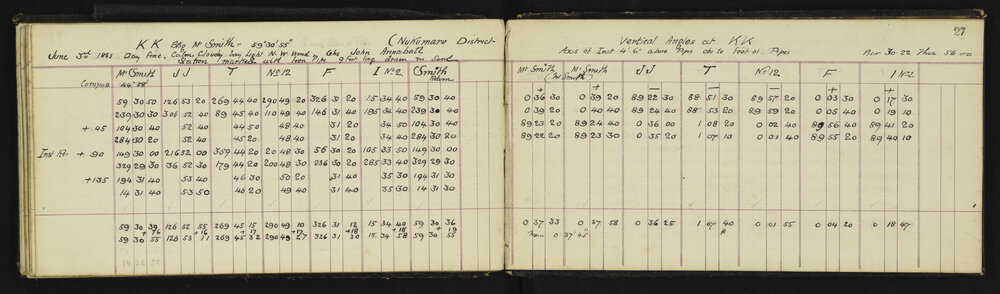 KK Bdg Mt Smith = 59°30'55" (Nukumaru District-
June 3rd 1883 Day fine, Calm, Cloudy, Obs John Annabell
Station marked with Iron Pipe 9 feet long driven in Sand
Mt Smith JJ T No 12 F I No 2 (Smith Return
Compass 44° 58'
59 30 50 126 53 20 269 44 40 290 49 20 326 31 20 15 34 40 59 30 40
239 30 30 306 52 40 89 45 40 110 49 40 146 31 40 195 34 40 239 30 40
+ 45 104 30 40 52 40 44 50 48 40 31 20 34 50 104 30 40
284 30 20 52 40 45 20 48 40 31 20 34 40 284 30 20
+ 90 149 30 00 216 52 00 359 44 20 20 48 30 56 30 20 105 33 50 149 30 00
329 29 30 36 52 30 179 44 20 200 48 30 236 30 20 285 33 40 329 29 30
+135 194 31 40 53 40 46 30 50 20 31 40 35 30 194 31 30
14 31 40 53 50 46 20 49 40 31 40 35 30 14 31 30
59 30 39 126 52 55 269 45 15 290 49 10 326 31 12 15 34 40 59 30 36
+ 16 + 16 + 17 + 17 + 18 + 18 + 19
59 30 55 126 53 11 269 45 32 290 49 27 326 31 30 15 34 58 59 30 55
14 32 55
27
Vertical Angles at KK
Axis of Inst 4' 6" above Pipe obs to Foot of Pipes Bar 30.22 Ther 56.00
Mt Smith Mt Smith JJ T No 12 F I No 2
+ + — — — — +
0 36 30 0 39 20 89 22 30 88 51 30 89 57 20 0 03 30 0 17 30
0 39 20 0 40 40 89 24 40 88 53 20 89 59 20 0 05 40 0 19 10
89 23 20 89 24 00 0 36 00 1 08 20 0 02 40 89 56 40 89 41 20
89 22 20 89 23 30 0 35 20 1 07 10 0 01 40 89 55 20 89 40 30
0 37 33 0 37 58 0 36 25 1 07 40 0 01 55 0 04 20 0 18 47
Mean 0 37' 45"